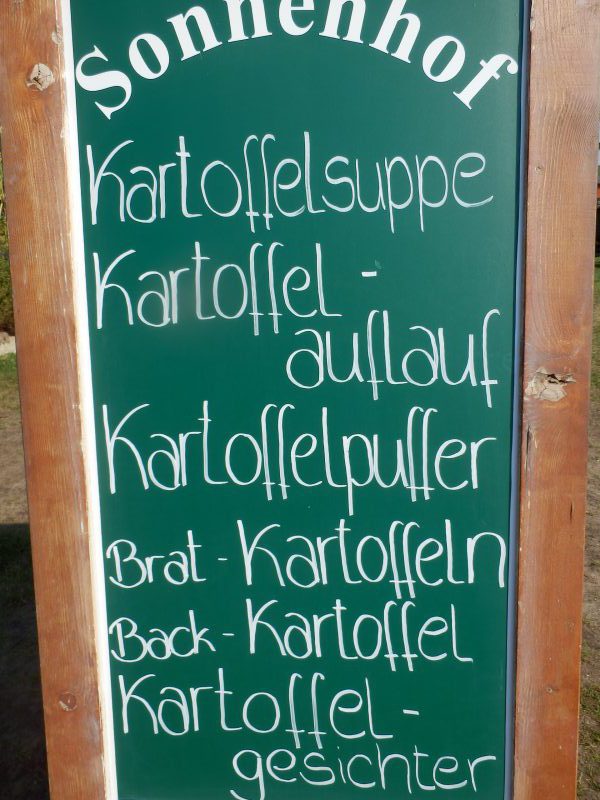 Sonnenhof
Kartoffelsuppe
Kartoffel -
auflauf
Kartoffelpuffer
Brat - Kartoffeln
Back - Kartoffel
Kartoffel -
gesichter